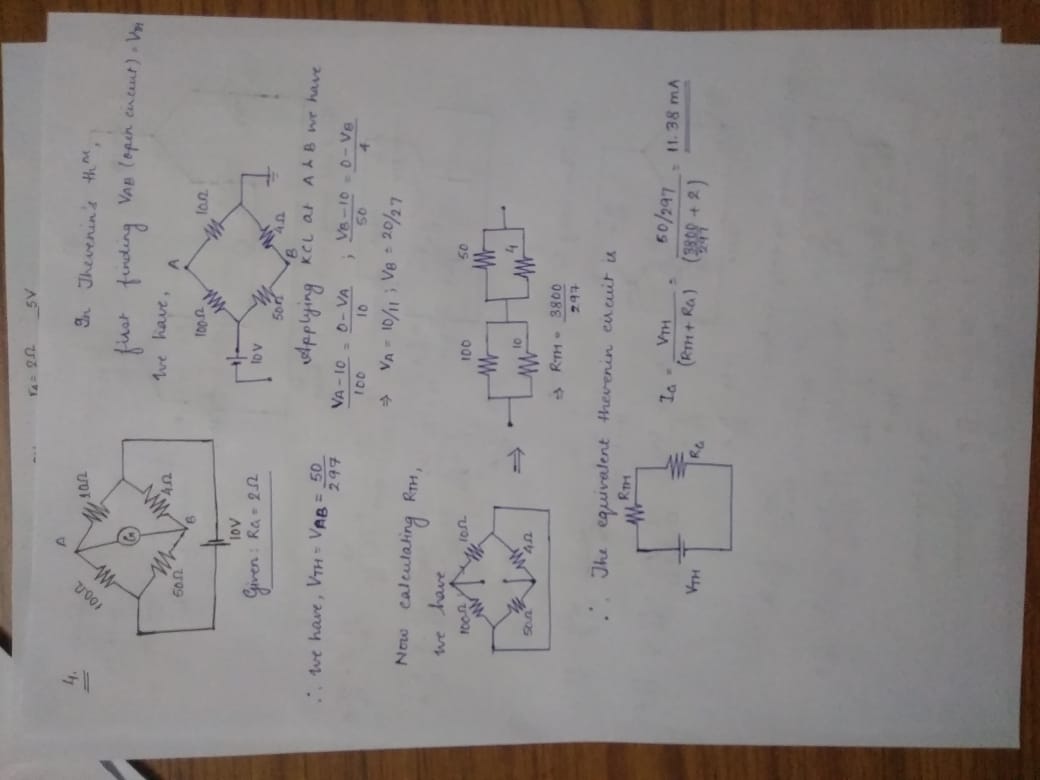 rG = 2Ω 5V
4.
A
100Ω
10Ω
G
50Ω
4Ω
B
10V
Given : RG = 2Ω
In Thevenin's thm,
first finding VAB (open circuit) = VTH
we have,
A
100Ω
10Ω
50Ω
4Ω
B
10V
Applying KCL at A & B we have
VA - 10 / 100 = 0 - VA / 10 ; VB - 10 / 50 = 0 - VB / 4
⇒ VA = 10/11 ; VB = 20/27
∴ we have, VTH = VAB = 50 / 297
Now calculating RTH,
we have
100Ω
10Ω
50Ω
4Ω
⇒
100
10
50
4
⇒ RTH = 3800 / 297
∴ The equivalent thevenin circuit is
VTH
RTH
RG
IG = VTH / (RTH + RG) = 50/297 / (3800/297 + 2) = 11.38 mA